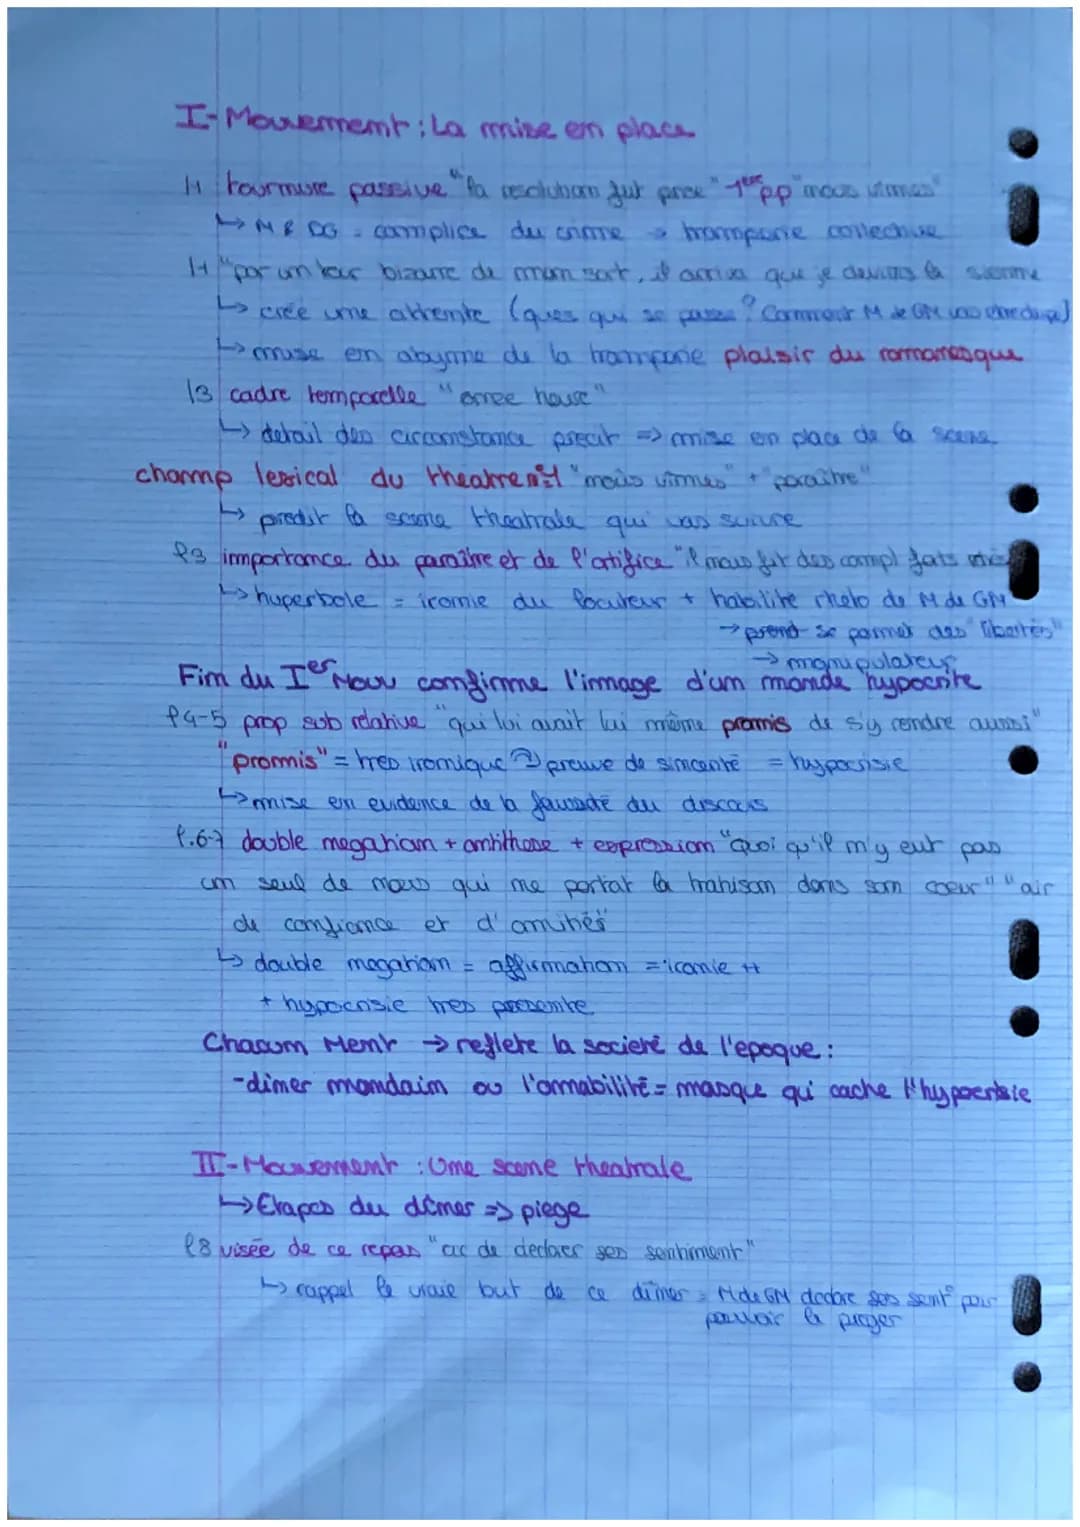 I-Mouvement : La mise en place
l1 tournure passive "la resolution fut prise" 1ère pp "nous vimes"
↳ M & DG = complice du crime → tromperie collective
l1 "par un tour bizarre de mon sort, il arriva que je devins la sienne
↳ crée une attente (ques qui se passe? Comment M de GM vas etre dupé)
↳ mise en abyme de la tromperie plaisir du romanesque
l3 cadre temporelle "onze heure"
↳ detail des circonstance precit => mise en place de la scene
champ lexical du theatre l1 "nous vimes" + "paraître"
↳ predit la scene theatrale qui vas suivre
l3 importance du paraître et de l'artifice "il nous fit des compl forts
↳ huperbole = ironie du locuteur + habilite rheto de M de GM
→ prend se permet des "libertés"
→ manipulateur
Fin du Ier Mouv confirme l'image d'un monde hypocrite
l4-5 prop sub relative "qui lui avait lui même promis de s'y rendre aussi"
"promis" = tres ironique preuve de sincerité = hypocrisie
↳ mise en evidence de la fausseté du discours
l.6-7 double negation + antithese + expression "quoi qu'il n'y eut pas
un seul de nous qui ne portat la trahison dans son coeur" "air
de confiance et d'amitiés"
↳ double negation = affirmation = ironie ++
+ hypocrisie tres presente
Chacun ment → reflete la societé de l'epoque :
-diner mondain ou l'amabilité = masque qui cache l'hypocrisie
II-Mouvement : Une scene theatrale
↳ Etapes du dîner => piege
l8 visée de ce repas "de declarer ses sentiment"
↳ rappel le vraie but de ce dîner = M de GM declare ses sent° pour
pouvoir le pieger